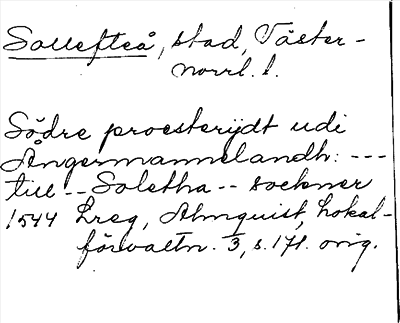 Sollefteå, stad, Väster-
norrl. l.
Södre proesterijdt udi
Ångermannelandh: ---
till -- Soletha -- sockner
1544 Lreg, Almquist, Lokal-
förvaltn. 3, s. 171. orig.